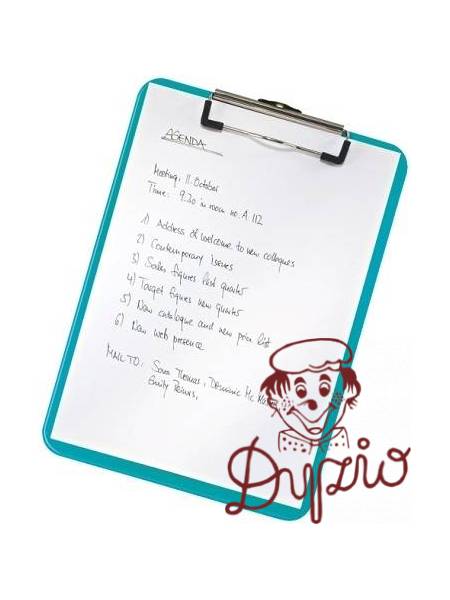 AGENDA
Meeting: 11. October
Time: 9.30 in room no. A 112
1) Address of welcome to new collegues
2) Contemporary issues
3) Sales figures last quarter
4) Target figures new quarter
5) New catalogue and new price list
6) New web presence
MAIL TO: Sara Thomas, Dominic Mc
Emily
Dyzio